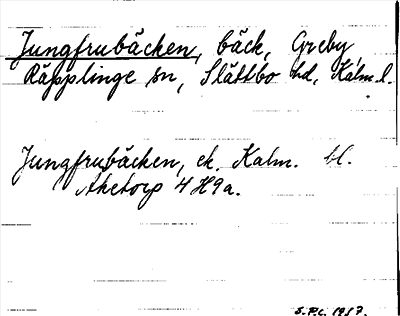 Jungfrubäcken, bäck, Greby
Räpplinge sn, Slättbo hd, Kalm.l.
Jungfrubäcken, ek. Kalm. bl.
Åketorp 4H9a.
S.P.L. 1957.